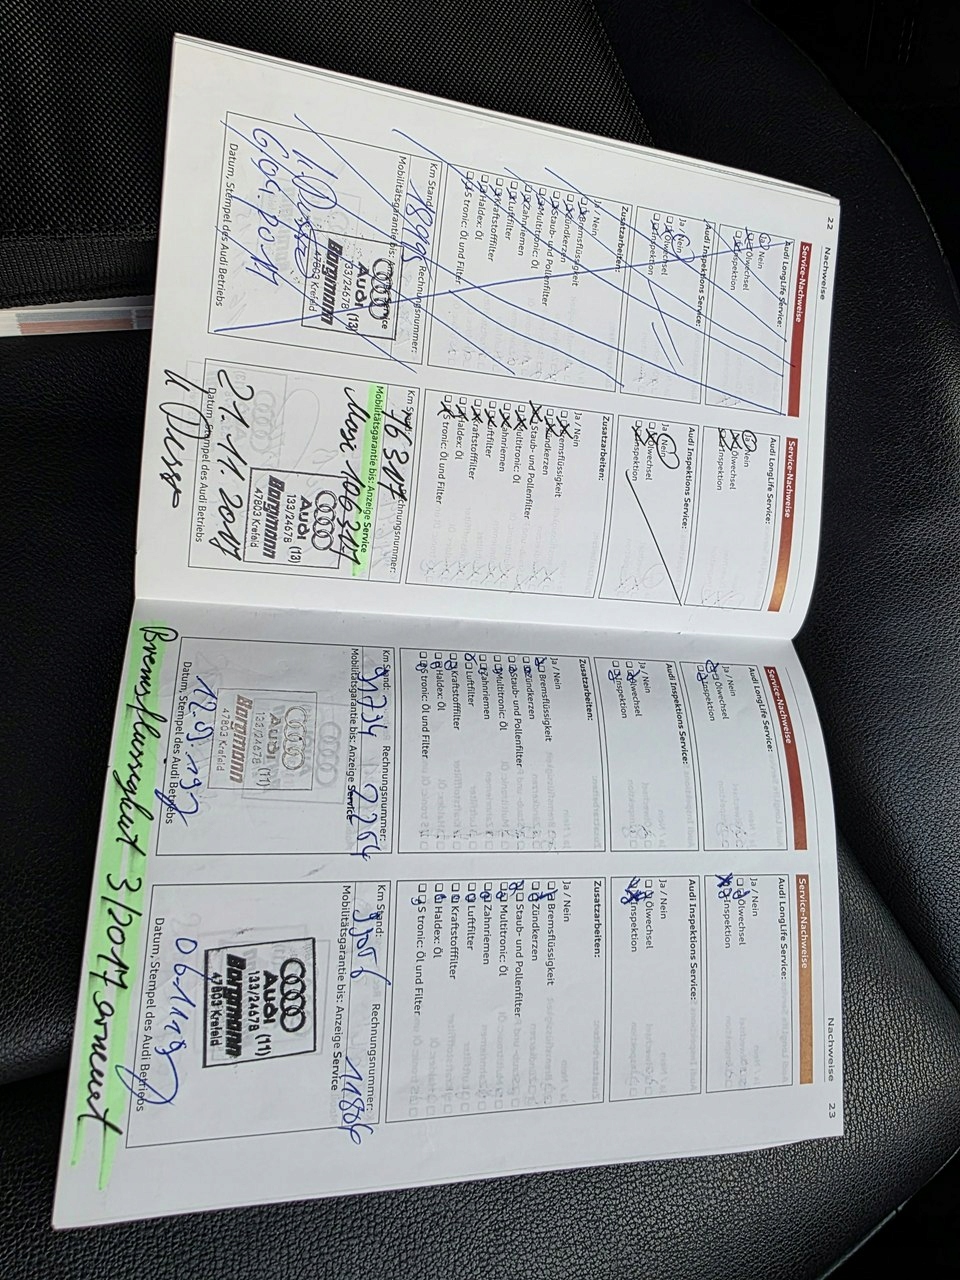 22 Nachweise
Service-Nachweise
Audi LongLife Service:
Ja / Nein
Ölwechsel
Inspektion
Audi Inspektions Service:
Ja / Nein
Ölwechsel
Inspektion
Zusatzarbeiten:
Ja / Nein
Bremsflüssigkeit
Zündkerzen
Staub- und Pollenfilter
Multitronic: Öl
Zahnriemen
Luftfilter
Kraftstofffilter
Haldex: Öl
S tronic: Öl und Filter
Km Stand: Rechnungsnummer:
Mobilitätsgarantie bis: Anzeige Service
Audi (13)
133/24678
Borgmann
47803 Krefeld
Datum, Stempel des Audi Betriebs
Service-Nachweise
Audi LongLife Service:
Ja / Nein
Ölwechsel
Inspektion
Audi Inspektions Service:
Ja / Nein
Ölwechsel
Inspektion
Zusatzarbeiten:
Ja / Nein
Bremsflüssigkeit
Zündkerzen
Staub- und Pollenfilter
Multitronic: Öl
Zahnriemen
Luftfilter
Kraftstofffilter
Haldex: Öl
S tronic: Öl und Filter
Km Stand: Rechnungsnummer:
76347
Mobilitätsgarantie bis: Anzeige Service
Max 106347
Audi (13)
133/24678
Borgmann
47803 Krefeld
21.11.2017
Datum, Stempel des Audi Betriebs
Service-Nachweise
Audi LongLife Service:
Ja / Nein
Ölwechsel
Inspektion
Audi Inspektions Service:
Ja / Nein
Ölwechsel
Inspektion
Zusatzarbeiten:
Ja / Nein
Bremsflüssigkeit
Zündkerzen
Staub- und Pollenfilter
Multitronic: Öl
Zahnriemen
Luftfilter
Kraftstofffilter
Haldex: Öl
S tronic: Öl und Filter
Km Stand: Rechnungsnummer:
91734
Mobilitätsgarantie bis: Anzeige Service
Audi (11)
133/24678
Borgmann
47803 Krefeld
12.9.19
Datum, Stempel des Audi Betriebs
Nachweise 23
Service-Nachweise
Audi LongLife Service:
Ja / Nein
Ölwechsel
Inspektion
Audi Inspektions Service:
Ja / Nein
Ölwechsel
Inspektion
Zusatzarbeiten:
Ja / Nein
Bremsflüssigkeit
Zündkerzen
Staub- und Pollenfilter
Multitronic: Öl
Zahnriemen
Luftfilter
Kraftstofffilter
Haldex: Öl
S tronic: Öl und Filter
Km Stand: Rechnungsnummer:
Mobilitätsgarantie bis: Anzeige Service
Audi (11)
133/24678
Borgmann
47803 Krefeld
Datum, Stempel des Audi Betriebs
Bremsflüssigkeit 3/2017 erneuert